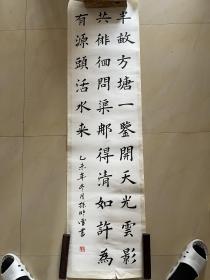 半畝方塘一鑒開天光雲影
共徘徊問渠那得清如許為
有源頭活水来
乙未年冬月 書